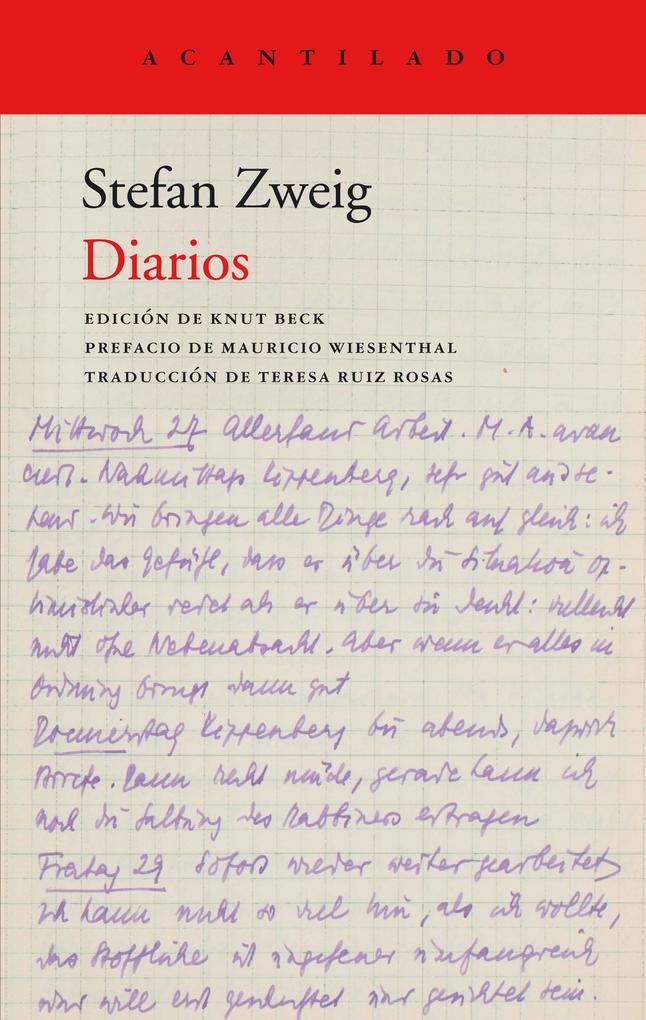 ACANTILADO
Stefan Zweig
Diarios
EDICIÓN DE KNUT BECK
PREFACIO DE MAURICIO WIESENTHAL
TRADUCCIÓN DE TERESA RUIZ ROSAS
Mittwoch 27 Allerhand Arbeit. M. A. avan
ciert. Nachmittags Kippenberg, sehr gut
wir bringen alle Dinge rasch auf gleich: ich
habe das Gefühl, dass er über die Situation op-
timistischer redet als er über sie denkt: vielleicht
nicht ohne Nebenabsicht. Aber wenn er alles in
Ordnung bringt dann gut
Donnerstag Kippenberg bis abends, dazwisch
Briefe. Dann recht müde, gerade kann ich
noch die des Rabbiners ertragen
Freitag 29 Sofort wieder weiter gearbeitet
Ich kann nicht so viel tun, als ich wollte,
das Stoffliche ist ungeheuer umfangreich
und will erst gesichtet sein.